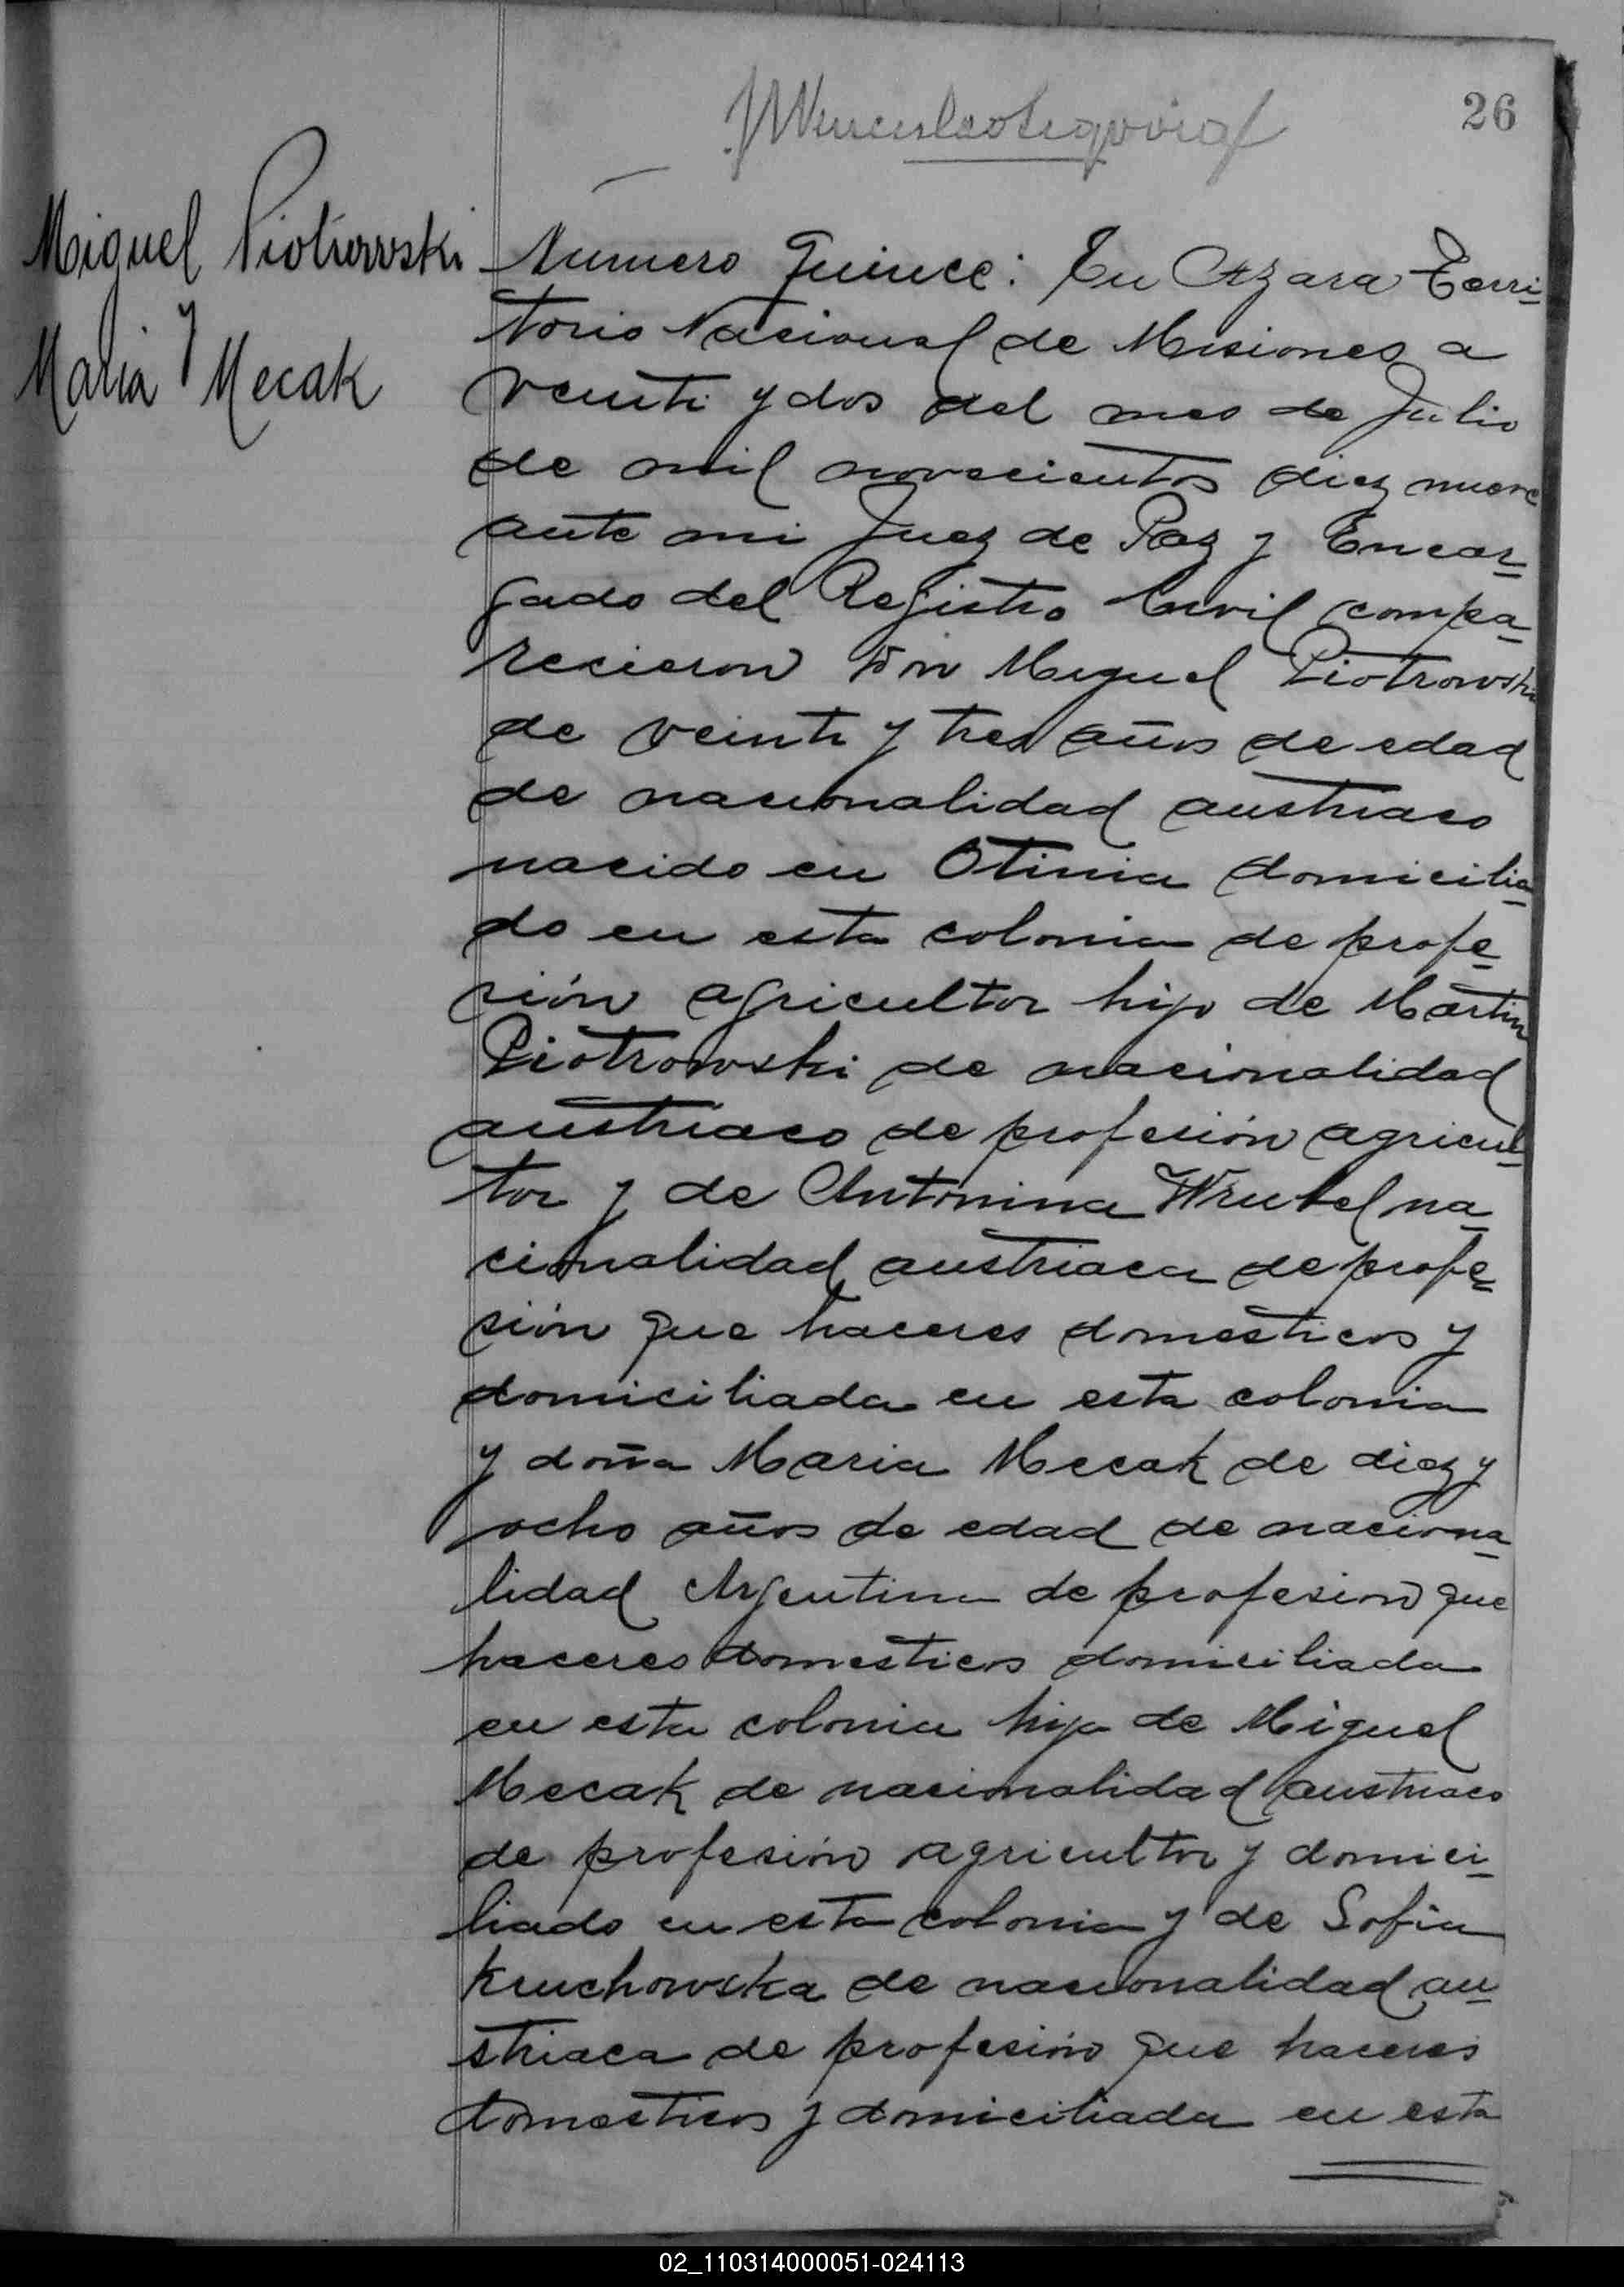 26
Miguel Piotrowski
y
Maria Mecak
Numero Quince: En Azara Terri-
torio Nacional de Misiones a
veinti y dos del mes de Julio
de mil novecientos diez nueve
ante mi Juez de Paz y Encar-
gado del Registro Civil compa-
recieron Don Miguel Piotrowski
de veinti y tres años de edad
de nacionalidad austriaco
nacido en Otinia domicilia-
do en esta colonia de profe-
sión agricultor hijo de Martin
Piotrowski de nacionalidad
austriaco de profesión agricul-
tor y de Antonina Wrubel na-
cionalidad austriaca de profe-
sión que haceres domesticos y
domiciliada en esta colonia
y doña Maria Mecak de diez y
ocho años de edad de naciona-
lidad Argentina de profesion que
haceres domesticos domiciliada
en esta colonia hija de Miguel
Mecak de nacionalidad austriaco
de profesión agricultor y domici-
liado en esta colonia y de Sofia
Kruchowska de nacionalidad au-
striaca de profesión que haceres
domesticos y domiciliada en esta
02_110314000051-024113